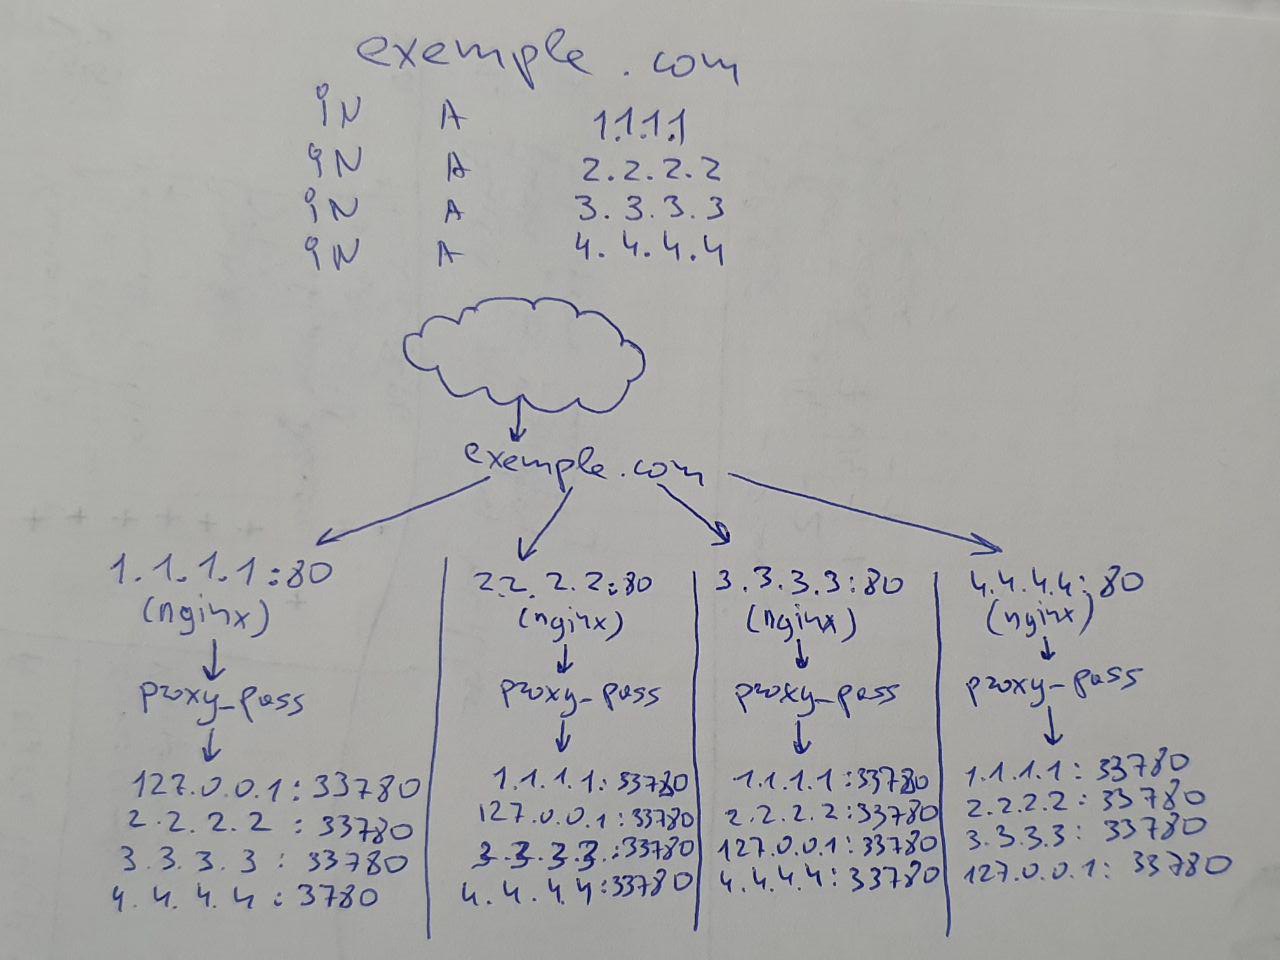 exemple.com
IN A 1.1.1.1
IN A 2.2.2.2
IN A 3.3.3.3
IN A 4.4.4.4
exemple.com
1.1.1.1:80
(nginx)
proxy_pass
127.0.0.1:33780
2.2.2.2:33780
3.3.3.3:33780
4.4.4.4:3780
2.2.2.2:80
(nginx)
proxy_pass
1.1.1.1:33780
127.0.0.1:33780
3.3.3.3.:33780
4.4.4.4:33780
3.3.3.3:80
(nginx)
proxy_pass
1.1.1.1:33780
2.2.2.2:33780
127.0.0.1:33780
4.4.4.4:33780
4.4.4.4:80
(nginx)
proxy_pass
1.1.1.1:33780
2.2.2.2:33780
3.3.3.3:33780
127.0.0.1:33780